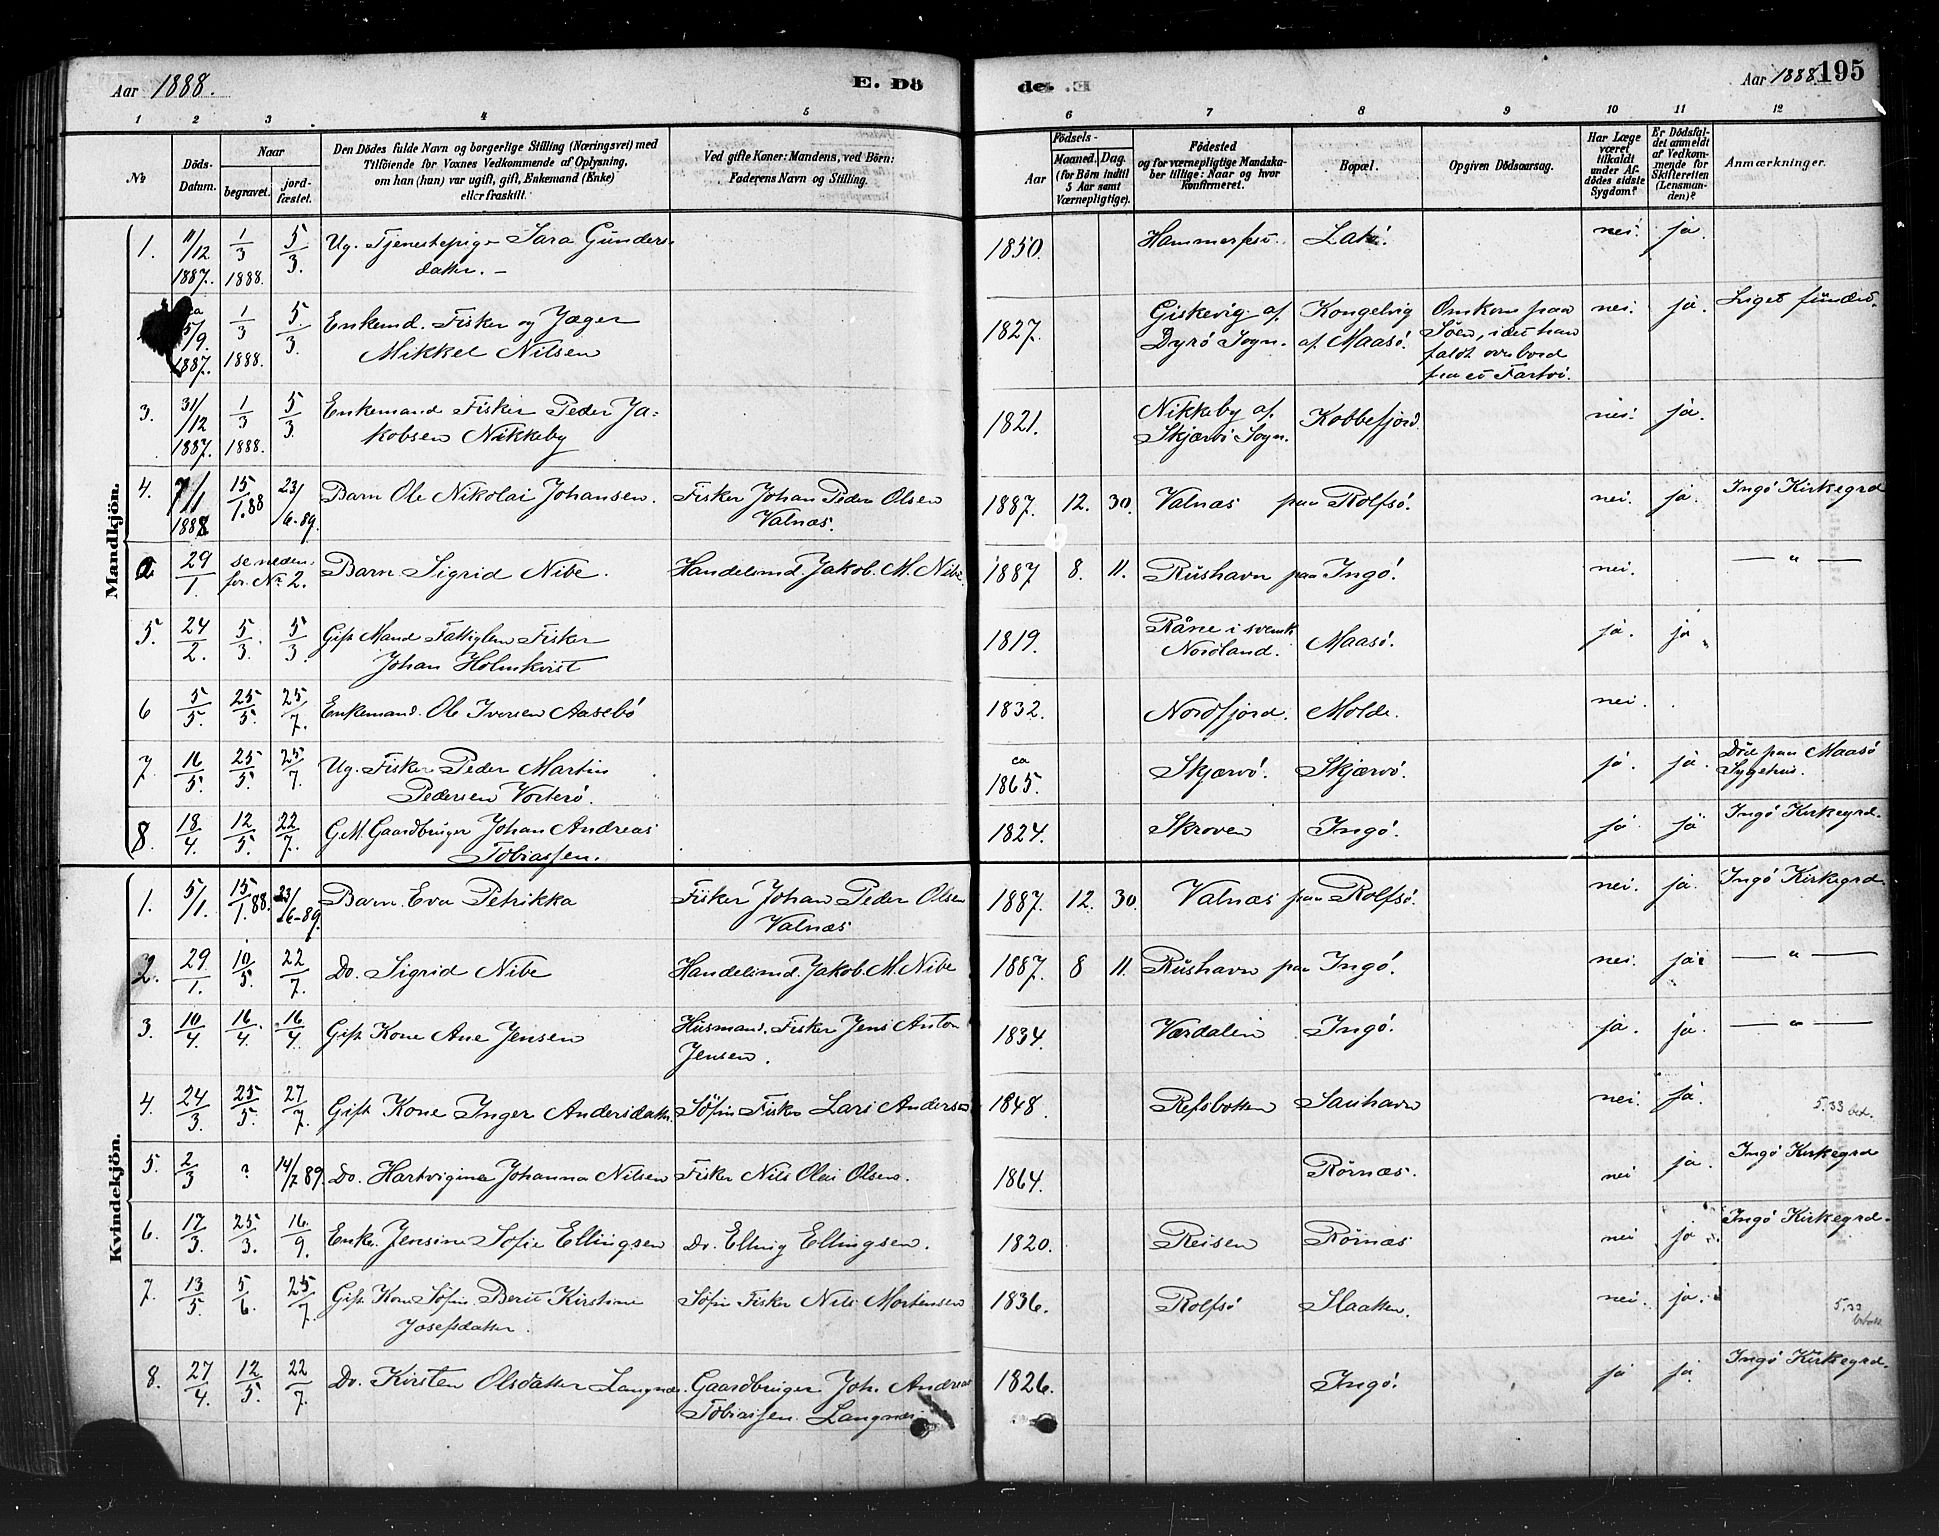 Aar 1888.
E. Dö
de.
Aar 1888.
195
1 2 3 4 5 6 7 8 9 10 11 12
№
Döds-
Datum.
Naar
begravet.
jord-
fæstet.
Den Dödes fulde Navn og borgerlige Stilling (Næringsvei) med
Tilföiende for Voxnes Vedkommende af Oplysning,
om han (hun) var ugift, gift, Enkemand (Enke)
eller fraskilt.
Ved gifte Koner: Mandens, ved Börn:
Faderens Navn og Stilling.
Aar
Födsels-
Maaned. Dag.
(for Börn indtil
5 Aar samt
Værnepligtige).
Födested
og for værnepligtige Mandska-
ber tillige: Naar og hvor
konfirmeret.
Bopæl.
Opgiven Dödsaarsag.
Har Læge
været
tilkaldt
under Af-
dödes sidste
Sygdom?
Er Dödsfal-
det anmeldt
af Vedkom-
mende for
Skifteretten
(Lensman-
den)?
Anmærkninger.
Mandkjön.
1. 11/12 1887. 1/3 1888. 5/3. Ug. Tjenestepige Sara Gunders-
datter. 1850. nei. ja.
ca 5/9. 1887. 1/3 1888. 5/3. Enkemd. Fisker og Jæger
Mikkel Nilsen 1827. Giskevig af
Dyrö Sogn. Kongelvig
af Maasö. Omkom paa
Söen, idet han
faldt overbord
fra et Fartöi. nei. ja. Liget fundet.
3. 31/12 1887. 1/3 1888. 5/3. Enkemand Fisker Peder Ja-
kobsen Nikkeby 1821. Nikkeby af
Skjærvö Sogn. Kobbefjord. nei. ja.
4. 7/1 1888 15/1.88 23/6-89. Barn Ole Nikolai Johansen. Fisker Johan Peder Olsen
Valnæs. 1887. 12. 30. Valnæs paa Rolfsö. nei. ja. Ingö Kirkegrd
29/1. se neden-
for No 2. Barn Sigrid Nibe. Handelsmd. Jakob M. Nibe. 1887 8. 11. Rushavn paa Ingö. nei. — " —
5. 24/2. 5/3. 5/3. Gift Mand Fattiglem Fisker
Johan Holmkvist 1819. Råne i svensk
Nordland. Maasö. ja. ja
6 5/5. 25/5. 25/7. Enkemand Ole Iversen Aasebö 1832. Nordfjord. Molde. nei.
7. 16/5. 25/5. 25/7. Ug. Fisker Peder Martin
Pedersen Vorterö. ca
1865. Skjærvö. Skjærvö. ja. ja. Död paa Maasö
Sygehus.
8. 18/4. 12/5. 22/7. G.M. Gaardbruger Johan Andreas
Tobiassen. 1824. Skroven Ingö. ja. ja Ingö Kirkegrd.
Kvindekjön.
1. 5/1. 15/1.88. 23/6-89. Barn Eva Petrikka Fisker Johan Peder Olsen
Valnæs 1887. 12. 30. Valnæs paa Rolfsö. nei. ja. Ingö Kirkegrd.
2. 29/1. 10/5. 22/7. Do. Sigrid Nibe Handelsmd. Jakob M. Nibe 1887. 8 11. Rushavn paa Ingö. nei. ja. — " —
3. 10/4. 16/4. 16/4. Gift Kone Ane Jensen Husmand. Fisker Jens Anton
Jensen. 1834. Værdalen Ingö. ja. ja. — " —
4. 24/3. 25/5. 27/7. Gift Kone Inger Andersdatter. Söfin Fisker Lars Andersen 1848. Refsbotten Sauhavn nei. ja. 5,33 bet.
5. 2/3 ? 14/7 89. Do. Hartvigine Johanna Nilsen Fisker Nils Olai Olsen. 1864. Rörnæs. nei ja. Ingö Kirkegrd
6. 17/3. 25/3. 16/9. Enke. Jensine Sofie Ellingsen Do. Elling Ellingsen. 1820. Reisen Rörnæs nei ja Ingö Kirkegrd.
7. 13/5. 5/6. 25/7. Gift Kone Söfin. Berit Kirstine
Josefsdatter. Söfin Fisker Nils Mortensen 1836. Rolfsö Slaatten. nei. ja. 5,33
betalt
8. 27/4. 12/5. 22/7. Do. Kirsten Olsdatter Langnæs. Gaardbruger Joh. Andreas
Tobiassen Langnæs 1826. Ingö. ja ja. Ingö Kirkegrd.